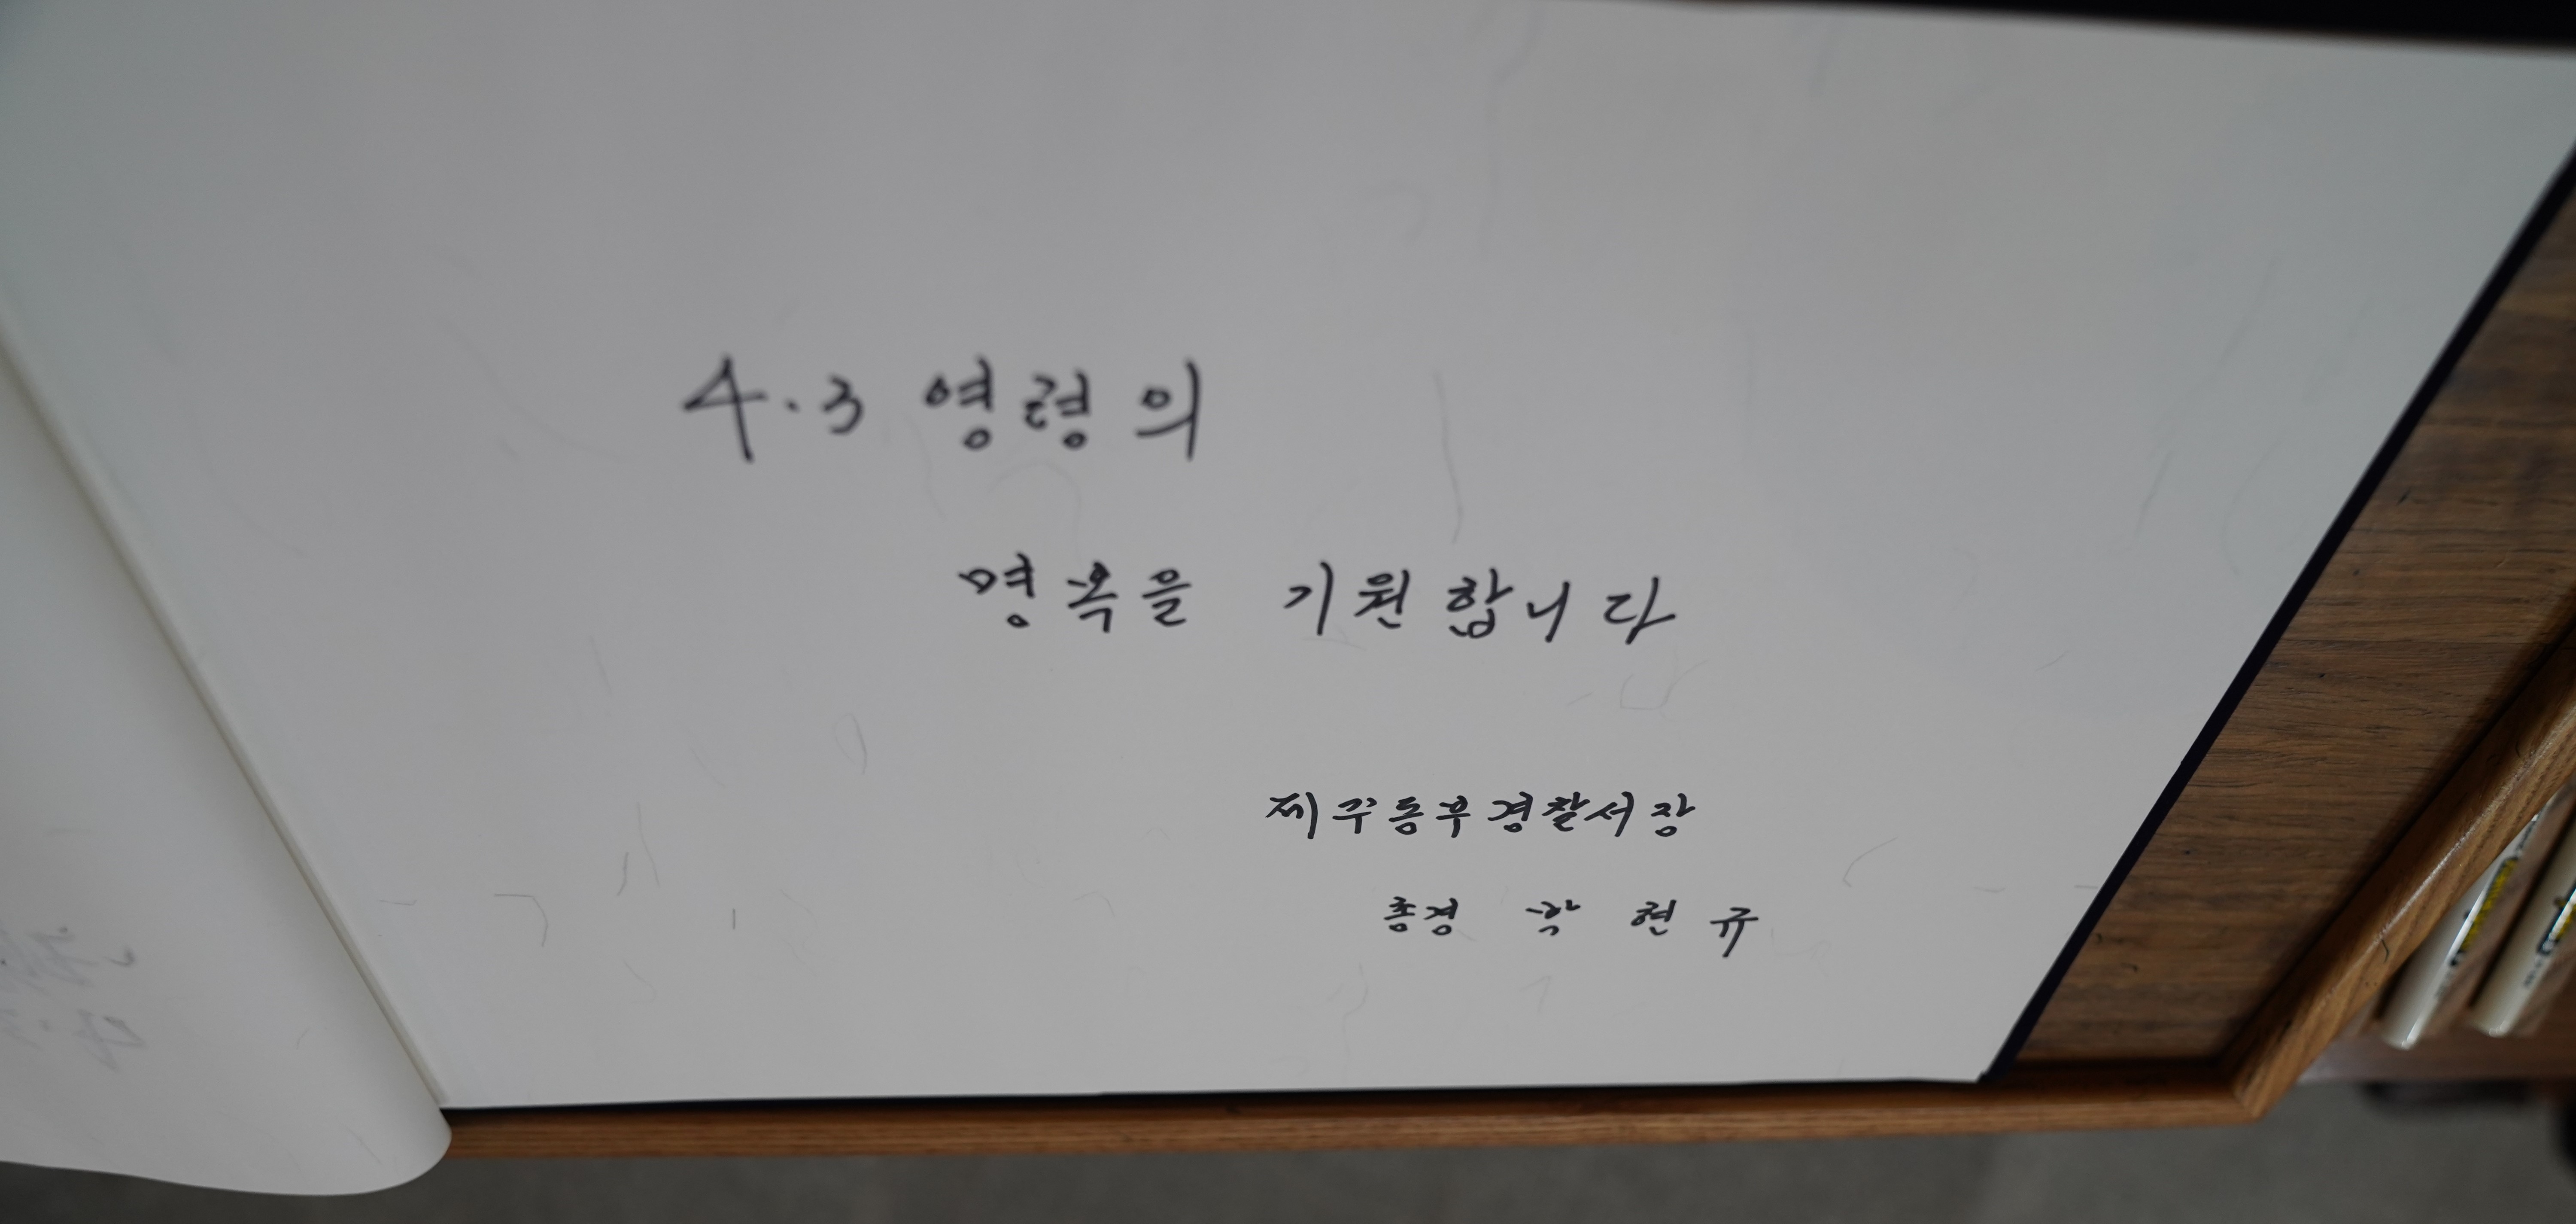 4·3 영령의
명옥을 기원합니다
제주동부경찰서장
총경 현규